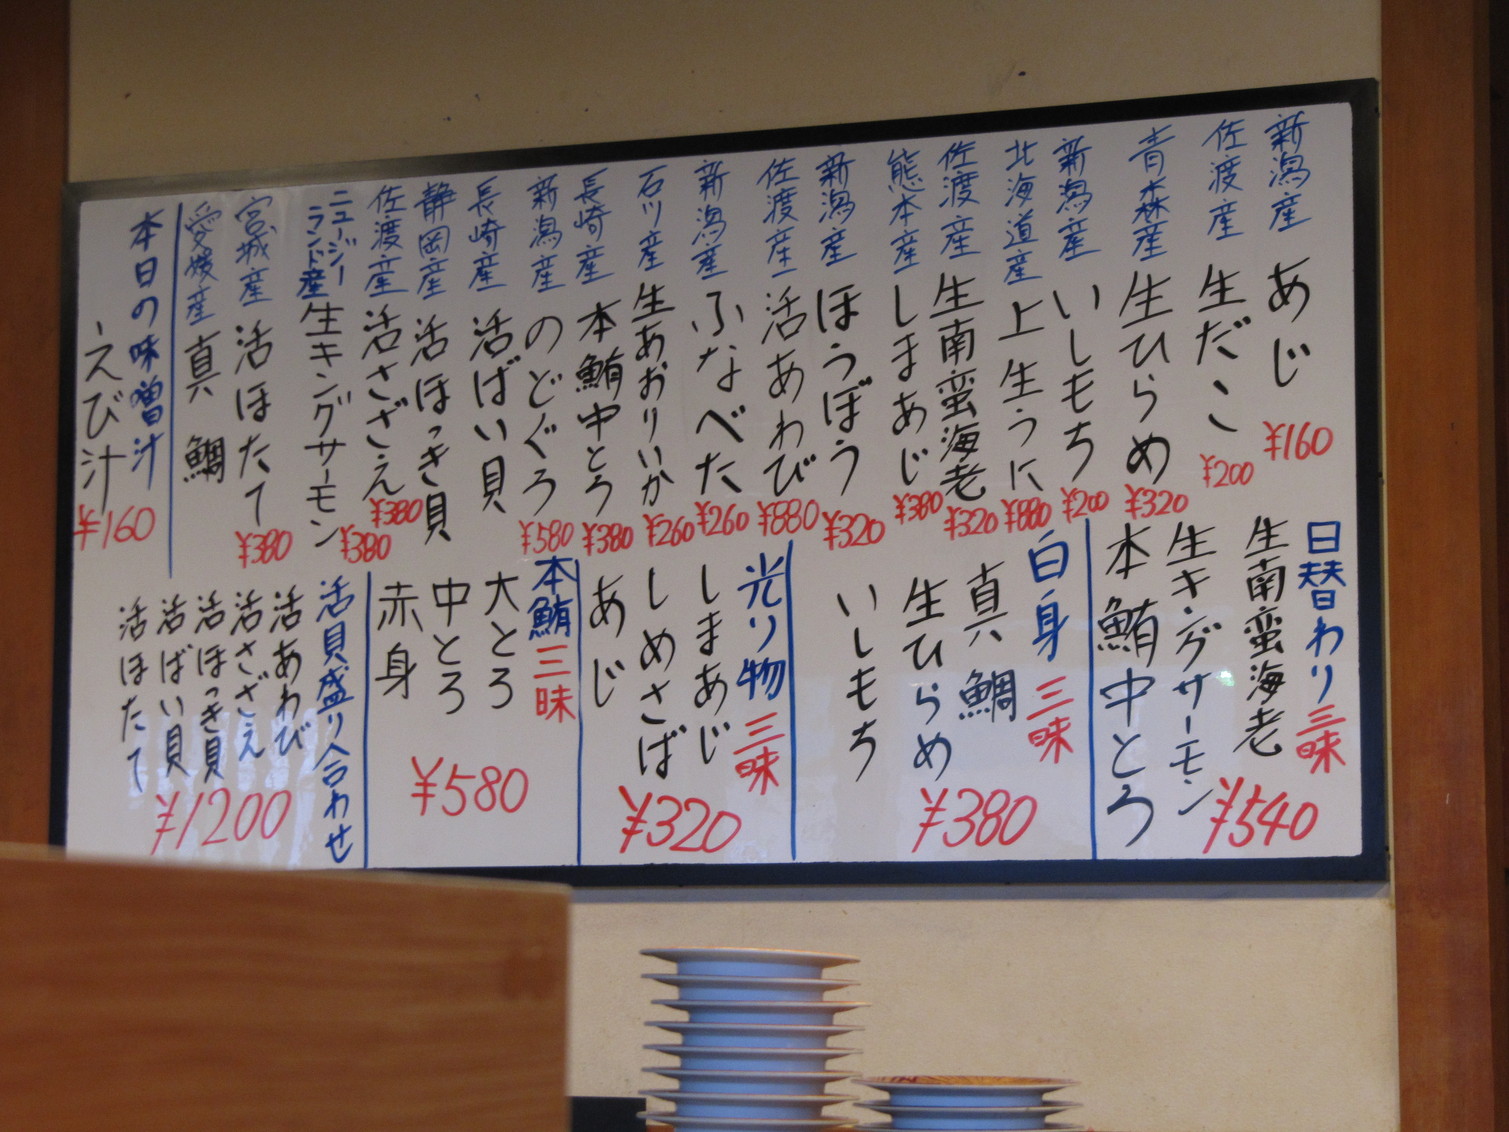 新潟産 あじ ¥160
佐渡産 生だこ ¥200
青森産 生ひらめ ¥320
新潟産 いしもち ¥200
北海道産 上生うに ¥880
佐渡産 生南蛮海老 ¥320
熊本産 しまあじ ¥380
新潟産 ほうぼう ¥320
佐渡産 活あわび ¥880
新潟産 ふなべた ¥260
石川産 生あおりいか ¥260
長崎産 本鮪中とろ ¥380
新潟産 のどぐろ ¥580
長崎産 活ばい貝
静岡産 活ほっき貝
佐渡産 活さざえ ¥380
ニュージーランド産 生キングサーモン ¥380
宮城産 活ほたて ¥380
愛媛産 真鯛
本日の味噌汁
えび汁 ¥160
日替わり三昧
生南蛮海老
生キングサーモン
本鮪中とろ
¥540
白身三昧
真鯛
生ひらめ
いしもち
¥380
光り物三昧
しまあじ
しめさば
あじ
¥320
本鮪三昧
大とろ
中とろ
赤身
¥580
活貝盛り合わせ
活あわび
活さざえ
活ほっき貝
活ばい貝
活ほたて
¥1200